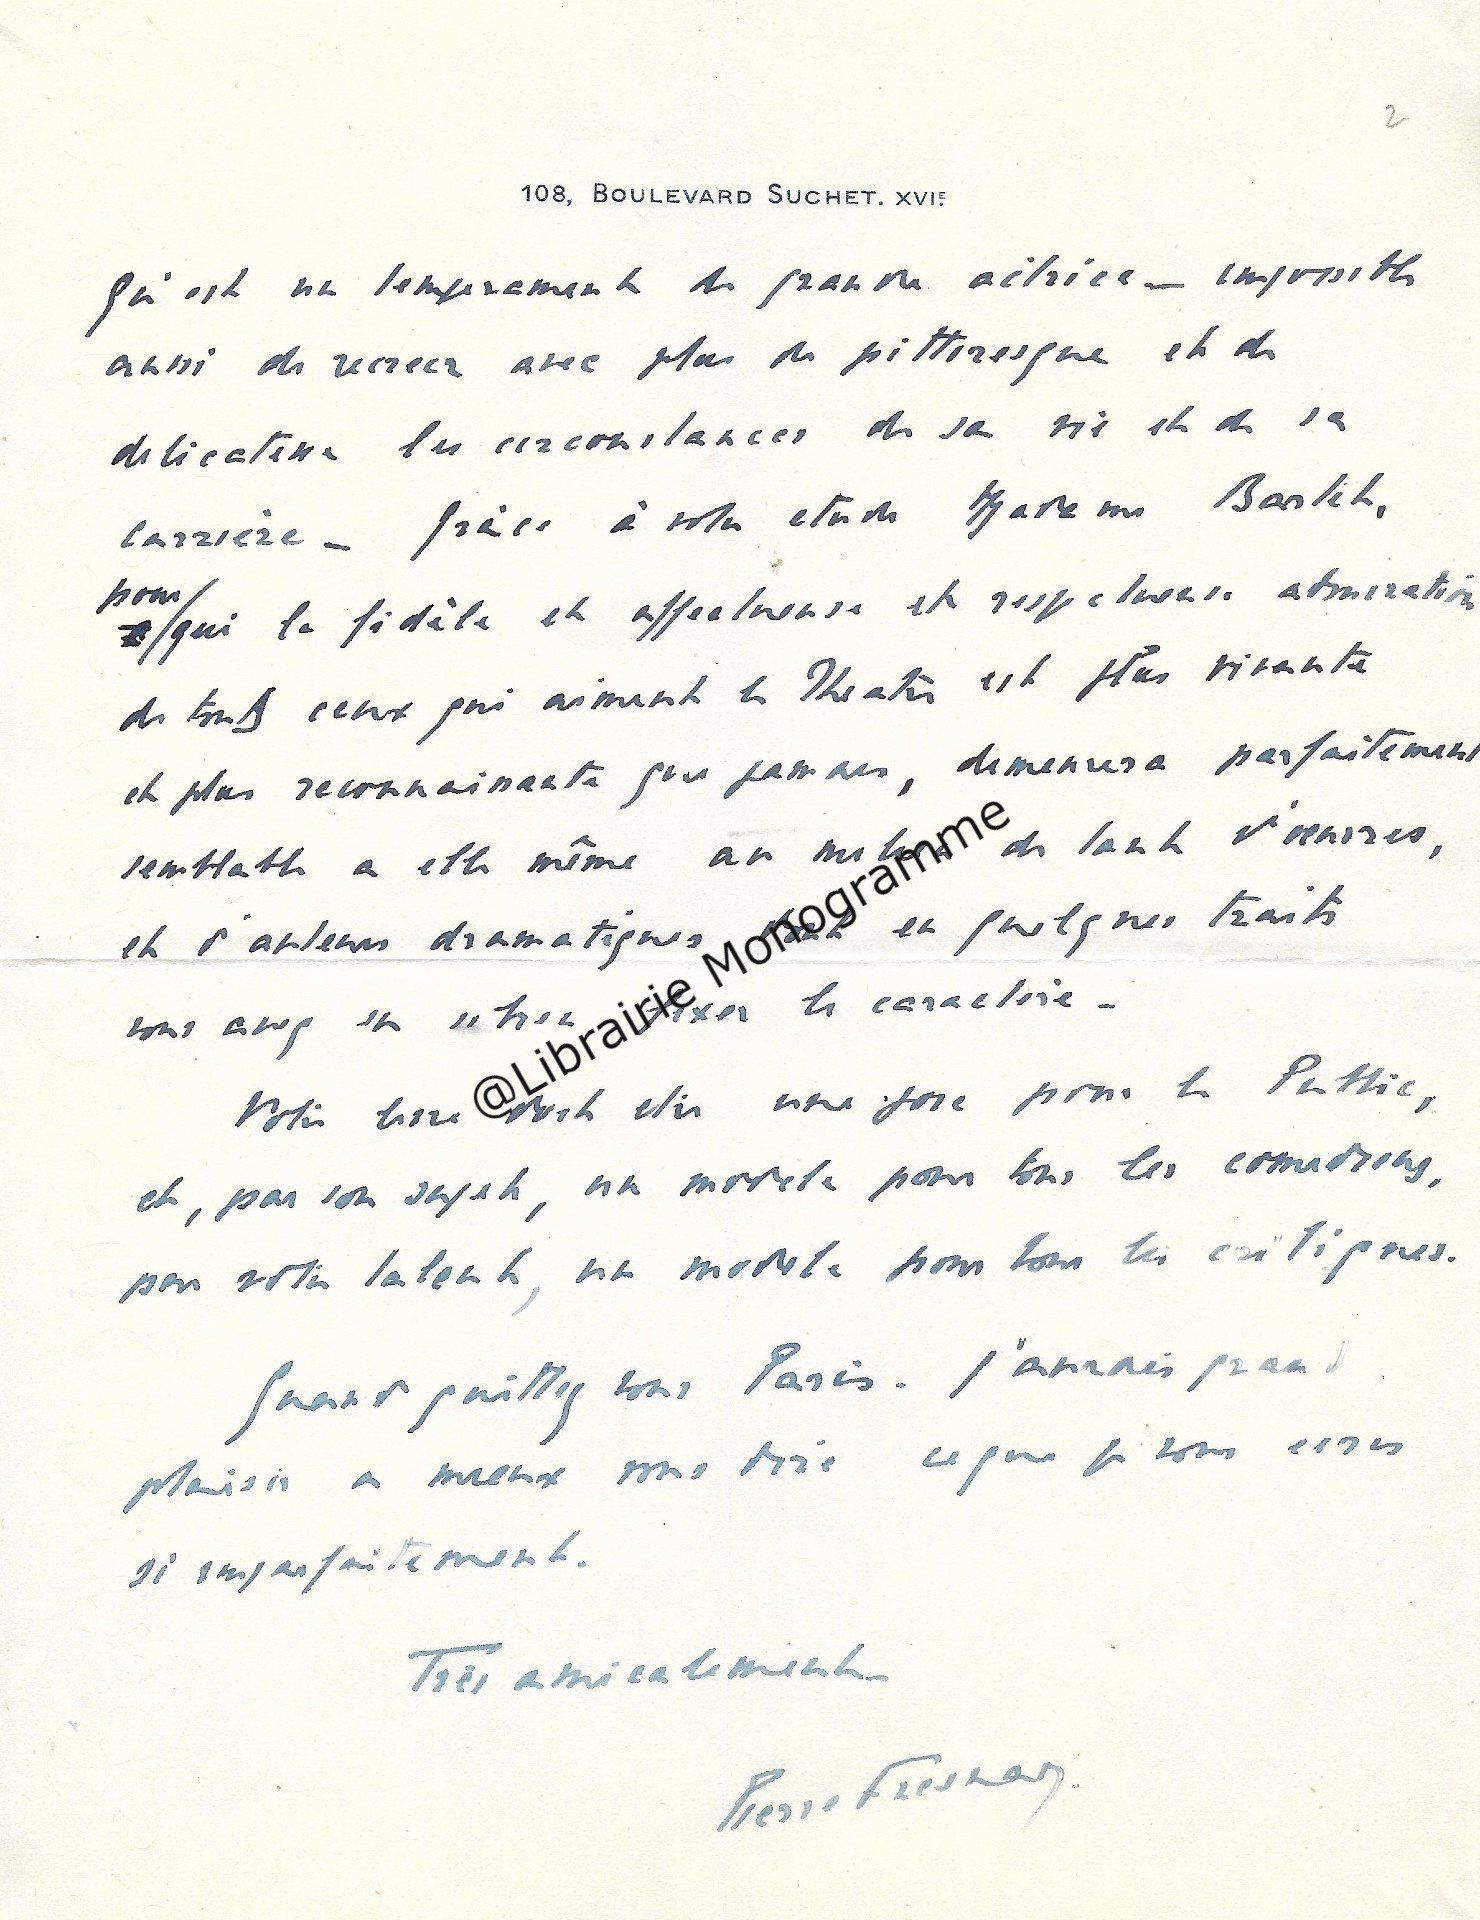 2
108, BOULEVARD SUCHET. XVIE.
qu'est un temperament de grande actrice_ impossible
aussi de recreer avec plus de pittoresque et de
delicatesse les circonstances de sa vie et de sa
carrière_ Grâce à votre etude Madame Bartet,
pour
qui la fidèle et affectueuse et respectueuse admiration
de tous ceux qui aiment le Theatre est plus vivante
et plus reconnaissante que jamais, demeurera parfaitement
semblable a elle même au milieu de tant d'œuvres,
et d'auteurs dramatiques dont en quelques traits
vous avez su fixer le caractère_
Votre livre doit etre une joie pour le Public,
et, par son sujet, un modele pour tous les comediens,
par votre talent, un modele pour tous les critiques.
Quand quittez vous Paris. J'aurais grand
plaisir a mieux vous dire ce que je vous ecris
si imparfaitement.
Très amicalement_
Pierre Fresnay.
@Librairie Monogramme